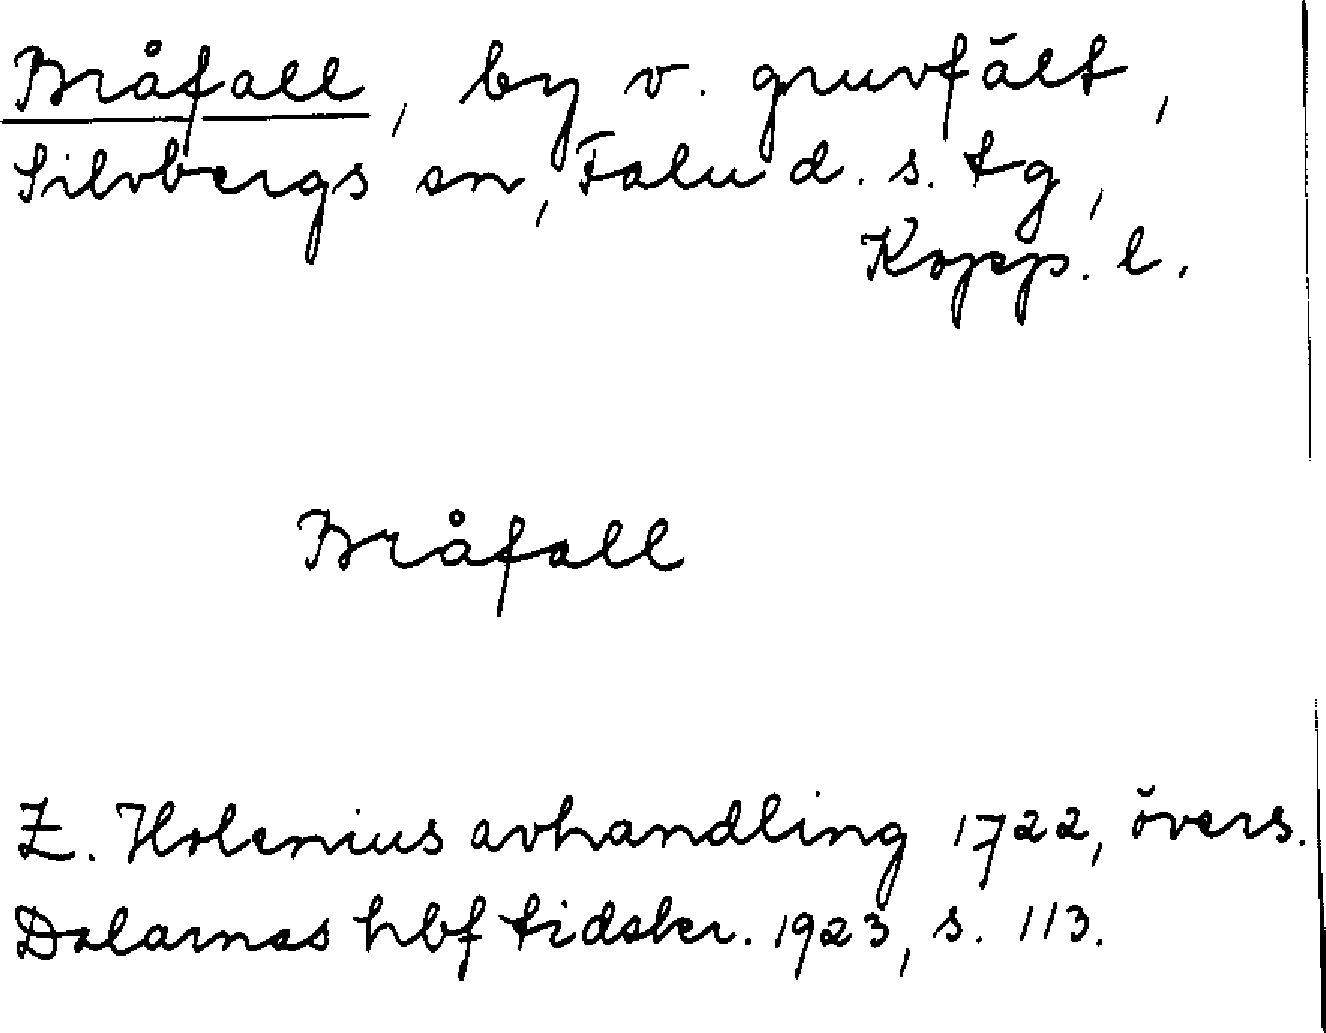 Bråfall, by v. gruvfält,
Silvbergs sn, Falu d. s. tg,
Kopp. l.
Bråfall
Z. Holenius avhandling 1722, övers.
Dalarnas hbf tidskr. 1923, s. 113.